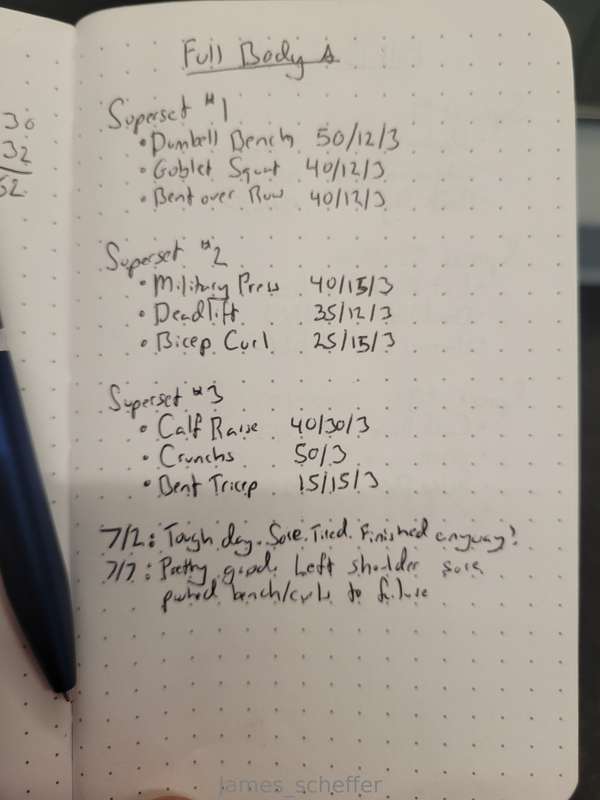 Full Body A
30
32
52
Superset #1
• Dumbell Bench 50/12/3
• Goblet Squat 40/12/3
• Bent over Row 40/12/3
Superset #2
• Military Press 40/15/3
• Deadlift 35/12/3
• Bicep Curl 25/15/3
Superset #3
• Calf Raise 40/30/3
• Crunchs 50/3
• Bent Tricep 15/15/3
7/2: Tough day. Sore. Tired. Finished anyway!
7/7: Pretty good. Left shoulder sore
pushed bench/curls to failure
james_scheffer